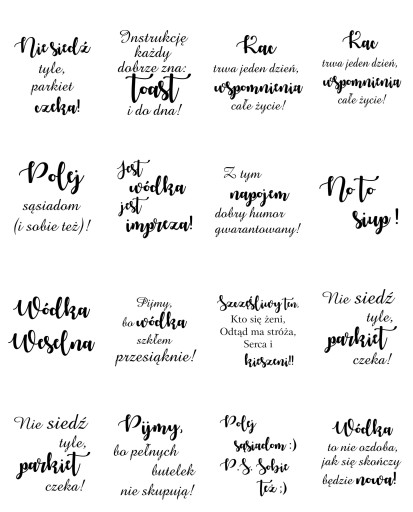 Nie siedź
tyle,
parkiet
czeka!
Instrukcję
każdy
dobrze zna:
toast
i do dna!
Kac
trwa jeden dzień,
wspomnienia
całe życie!
Kac
trwa jeden dzień,
wspomnienia
całe życie!
Polej
sąsiadom
(i sobie też)!
Jest
wódka
jest
impreza!
Z tym
napojem
dobry humor
gwarantowany!
No to
siup!
Wódka
Weselna
Pijmy,
bo wódka
szkłem
przesiąknie!
Szczęśliwy ten,
Kto się żeni,
Odtąd ma stróża,
Serca i
kieszeni!!
Nie siedź
tyle,
parkiet
czeka!
Nie siedź
tyle,
parkiet
czeka!
Pijmy,
bo pełnych
butelek
nie skupują!
Polej
sąsiadom :)
P.S. Sobie
też ;)
Wódka
to nie ozdoba,
jak się skończy
będzie nowa!